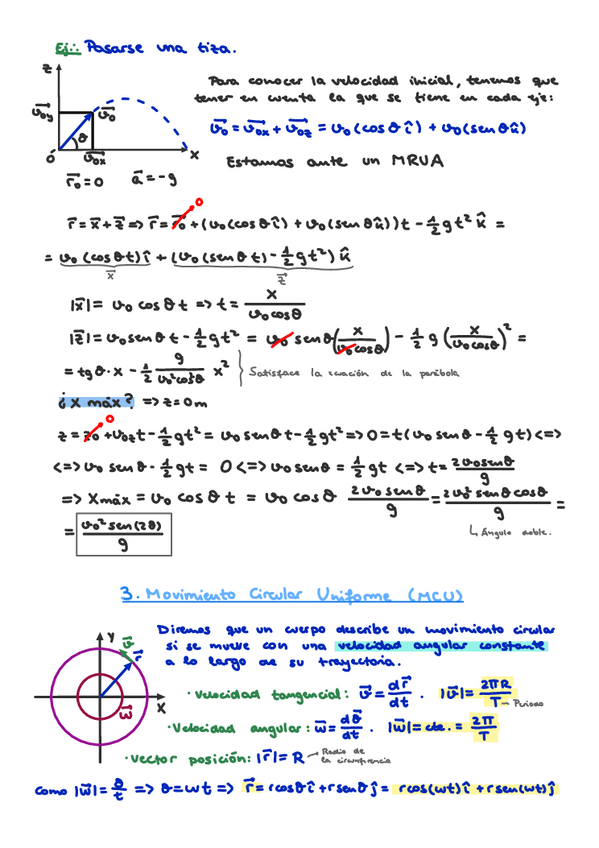 Ej.: Pasarse una tiza.
z
v₀y v₀
θ
0 v₀x x
Para conocer la velocidad inicial, tenemos que
tener en cuenta la que se tiene en cada eje:
v₀ = v₀x + v₀z = v₀(cosθ î) + v₀(senθ k̂)
Estamos ante un MRUA
r₀ = 0 a = -g
r = x + z => r = r₀ 0 + (v₀(cosθ î) + v₀(senθ k̂))t - 1/2 g t² k̂ =
= v₀(cosθt) î + (v₀(senθt) - 1/2 g t²) k̂
x z
|x| = v₀ cosθ t => t = x / v₀cosθ
|z| = v₀ senθ t - 1/2 g t² = v₀ senθ (x / v₀cosθ) - 1/2 g (x / v₀cosθ)² =
= tgθ · x - 1/2 g / v₀²cos²θ x² } Satisface la ecuación de la parábola
¿x máx? => z = 0m
z = z₀ 0 + v₀zt - 1/2 gt² = v₀ senθt - 1/2 gt² => 0 = t(v₀ senθ - 1/2 gt) <=>
<=> v₀ senθ - 1/2 gt = 0 <=> v₀ senθ = 1/2 gt <=> t = 2v₀senθ / g
=> Xmáx = v₀ cosθ t = v₀ cosθ 2v₀ senθ / g = 2v₀² senθ cosθ / g =
= v₀² sen(2θ) / g
Ángulo doble.
3. Movimiento Circular Uniforme (MCU)
Diremos que un cuerpo describe un movimiento circular
si se mueve con una velocidad angular constante
a lo largo de su trayectoria.
y v r
w x
· Velocidad tangencial: v = dr/dt . |v| = 2πR/T Periodo
· Velocidad angular: w = dθ/dt . |w| = cte. = 2π/T
· Vector posición: |r| = R Radio de
la circunferencia
Como |w| = θ/t => θ = wt => r = rcosθ î + rsenθ ĵ = rcos(wt) î + rsen(wt) ĵ